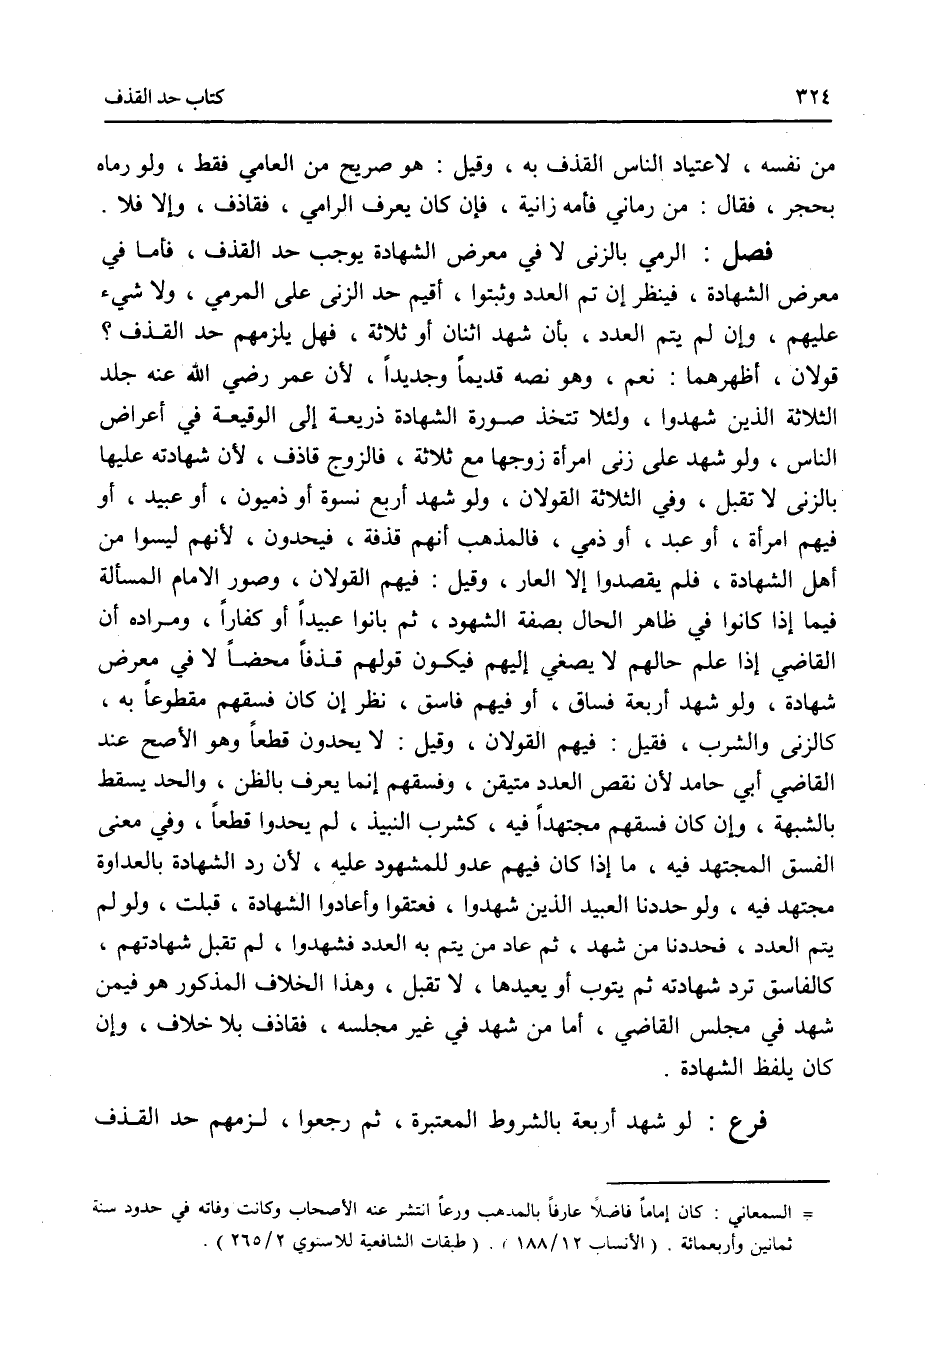 ٣٢٤ كتاب حد القذف
من نفسه ، لاعتياد الناس القذف به ، وقيل : هو صريح من العامي فقط ، ولو رماه
بحجر ، فقال : من رماني فأمه زانية ، فإن كان يعرف الرامي ، فقاذف ، وإلا فلا .
فصل : الرمي بالزنى لا في معرض الشهادة يوجب حد القذف ، فأما في
معرض الشهادة ، فينظر إن تم العدد وثبتوا ، أقيم حد الزنى على المرمي ، ولا شيء
عليهم ، وإن لم يتم العدد ، بأن شهد اثنان أو ثلاثة ، فهل يلزمهم حد القذف ؟
قولان ، أظهرهما : نعم ، وهو نصه قديماً وجديداً ، لأن عمر رضي الله عنه جلد
الثلاثة الذين شهدوا ، ولئلا تتخذ صورة الشهادة ذريعة إلى الوقيعة في أعراض
الناس ، ولو شهد على زنى امرأة زوجها مع ثلاثة ، فالزوج قاذف ، لأن شهادته عليها
بالزنى لا تقبل ، وفي الثلاثة القولان ، ولو شهد أربع نسوة أو ذميون ، أو عبيد ، أو
فيهم امرأة ، أو عبد ، أو ذمي ، فالمذهب أنهم قذفة ، فيحدون ، لأنهم ليسوا من
أهل الشهادة ، فلم يقصدوا إلا العار ، وقيل : فيهم القولان ، وصور الامام المسألة
فيما إذا كانوا في ظاهر الحال بصفة الشهود ، ثم بانوا عبيداً أو كفاراً ، ومراده أن
القاضي إذا علم حالهم لا يصغي إليهم فيكون قولهم قذفاً محضاً لا في معرض
شهادة ، ولو شهد أربعة فساق ، أو فيهم فاسق ، نظر إن كان فسقهم مقطوعاً به ،
كالزنى والشرب ، فقيل : فيهم القولان ، وقيل : لا يحدون قطعاً وهو الأصح عند
القاضي أبي حامد لأن نقص العدد متيقن ، وفسقهم إنما يعرف بالظن ، والحد يسقط
بالشبهة ، وإن كان فسقهم مجتهداً فيه ، كشرب النبيذ ، لم يحدوا قطعاً ، وفي معنى
الفسق المجتهد فيه ، ما إذا كان فيهم عدو للمشهود عليه ، لأن رد الشهادة بالعداوة
مجتهد فيه ، ولو حددنا العبيد الذين شهدوا ، فعتقوا وأعادوا الشهادة ، قبلت ، ولو لم
يتم العدد ، فحددنا من شهد ، ثم عاد من يتم به العدد فشهدوا ، لم تقبل شهادتهم ،
كالفاسق ترد شهادته ثم يتوب أو يعيدها ، لا تقبل ، وهذا الخلاف المذكور هو فيمن
شهد في مجلس القاضي ، أما من شهد في غير مجلسه ، فقاذف بلا خلاف ، وإن
كان يلفظ الشهادة .
فرع : لو شهد أربعة بالشروط المعتبرة ، ثم رجعوا ، لزمهم حد القذف
= السمعاني : كان إماماً فاضلاً عارفاً بالمدهب ورعاً انتشر عنه الأصحاب وكانت وفاته في حدود سنة
ثمانين وأربعمائة . ( الأنساب ١٨٨/١٢ ) . ( طبقات الشافعية للاسنوي ٢٦٥/٢ ) .